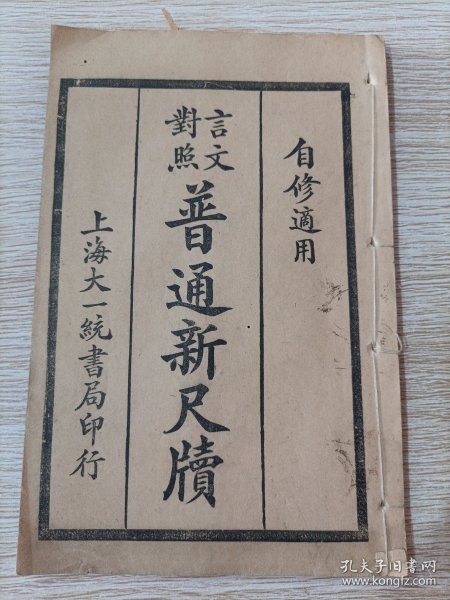 自修適用
言文對照
普通新尺牘
上海大一統書局印行
孔夫子旧书网
www.kongfz.com